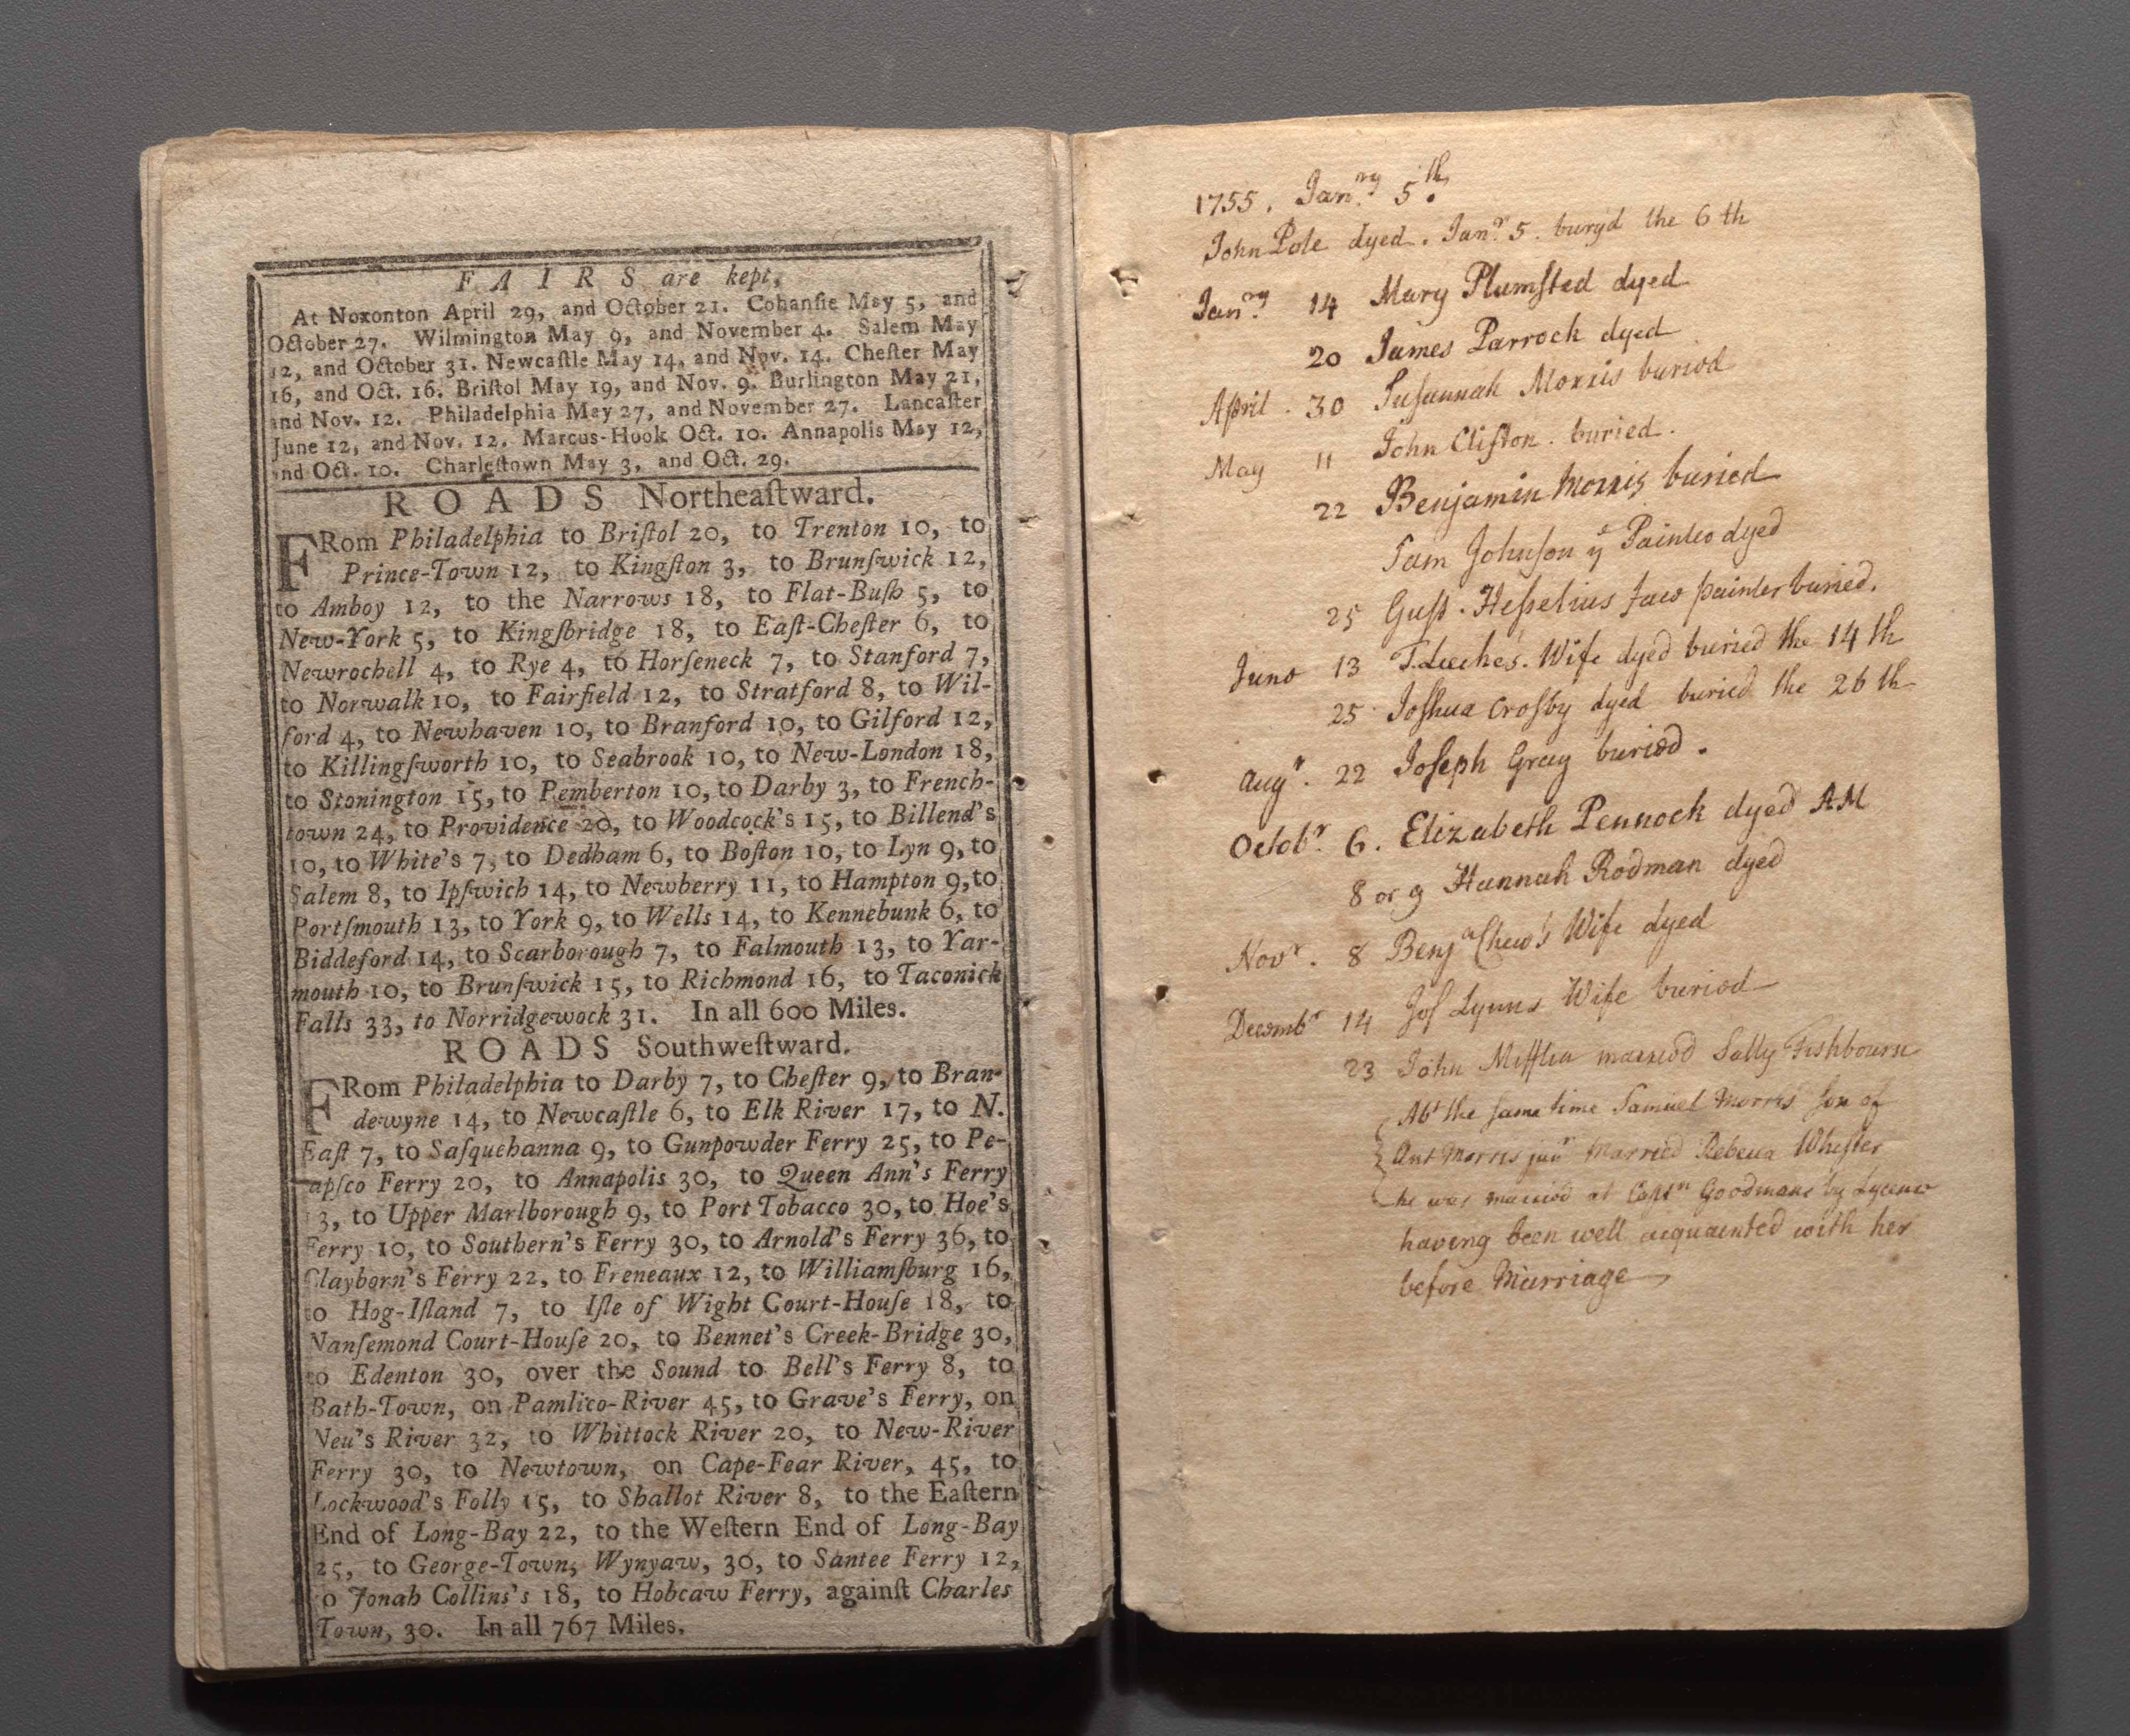 F A I R S are kept,
At Noxonton April 29, and October 21. Cohanſie May 5, and
October 27. Wilmington May 9, and November 4. Salem May
12, and October 31. Newcaſtle May 14, and Nov. 14. Cheſter May
16, and Oct. 16. Briſtol May 19, and Nov. 9. Burlington May 21,
and Nov. 12. Philadelphia May 27, and November 27. Lancaſter
June 12, and Nov. 12. Marcus-Hook Oct. 10. Annapolis May 12,
and Oct. 10. Charleſtown May 3, and Oct. 29.
R O A D S Northeaſtward.
FRom Philadelphia to Briſtol 20, to Trenton 10, to
Prince-Town 12, to Kingſton 3, to Brunſwick 12,
to Amboy 12, to the Narrows 18, to Flat-Buſh 5, to
New-York 5, to Kingſbridge 18, to Eaſt-Cheſter 6, to
Newrochell 4, to Rye 4, to Horſeneck 7, to Stanford 7,
to Norwalk 10, to Fairfield 12, to Stratford 8, to Wil-
ford 4, to Newhaven 10, to Branford 10, to Gilford 12,
to Killingſworth 10, to Seabrook 10, to New-London 18,
to Stonington 15, to Pemberton 10, to Darby 3, to French-
town 24, to Providence 20, to Woodcock's 15, to Billend's
10, to White's 7, to Dedham 6, to Boſton 10, to Lyn 9, to
Salem 8, to Ipſwich 14, to Newberry 11, to Hampton 9, to
Portſmouth 13, to York 9, to Wells 14, to Kennebunk 6, to
Biddeford 14, to Scarborough 7, to Falmouth 13, to Yar-
mouth 10, to Brunſwick 15, to Richmond 16, to Taconick
Falls 33, to Norridgewock 31. In all 600 Miles.
R O A D S Southweſtward.
FRom Philadelphia to Darby 7, to Cheſter 9, to Bran-
dewyne 14, to Newcaſtle 6, to Elk River 17, to N.
Eaſt 7, to Saſquehanna 9, to Gunpowder Ferry 25, to Pe-
apſco Ferry 20, to Annapolis 30, to Queen Ann's Ferry
13, to Upper Marlborough 9, to Port Tobacco 30, to Hoe's
Ferry 10, to Southern's Ferry 30, to Arnold's Ferry 36, to
Clayborn's Ferry 22, to Freneaux 12, to Williamſburg 16,
to Hog-Iſland 7, to Iſle of Wight Court-Houſe 18, to
Nanſemond Court-Houſe 20, to Bennet's Creek-Bridge 30,
to Edenton 30, over the Sound to Bell's Ferry 8, to
Bath-Town, on Pamlico-River 45, to Grave's Ferry, on
Neu's River 32, to Whittock River 20, to New-River
Ferry 30, to Newtown, on Cape-Fear River, 45, to
Lockwood's Folly 15, to Shallot River 8, to the Eaſtern
End of Long-Bay 22, to the Weſtern End of Long-Bay
25, to George-Town, Wynyaw, 30, to Santee Ferry 12,
to Jonah Collins's 18, to Hobcaw Ferry, againſt Charles
Town, 30. In all 767 Miles.
1755. Janry 5th.
John Pole dyed. Janr. 5. buryd the 6th
Janry 14 Mary Plumſted dyed
20 James Parrock dyed
April. 30 Suſannah Morris buried
May 11 John Clifton. buried.
22 Benjamin Morris buried
Sam Johnſon ye Painter dyed
25 Guſt. Heſselius face painter buried.
June 13 T. Leeche's. Wife dyed buried the 14th
25 Joſhua Croſby dyed buried the 26th
Augt. 22 Joſeph Gray buried.
Octobr. 6. Elizabeth Pennock dyed AM
8 or 9 Hannah Rodman dyed
Novr. 8 Benja Chew's Wife dyed
Decembr 14 Joſ Lynns Wife buried
23 John Mifflin married Sally Fishbourn
Abt the ſame time Samuel Morris ſon of
Ant Morris junr Married Rebecca Wheſter
he was married at Captn Goodmans by Lycence
having been well acquainted with her
before Marriage